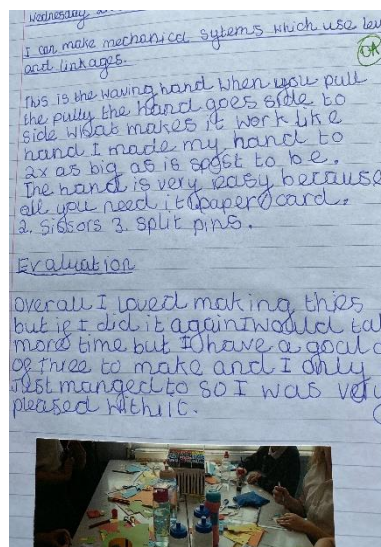 Wednesday
I can make mechanical sytems which use lev
and linkages.
OA
This is the waving hand when you pull
the pully the hand goes side to
side what makes it work like
hand I made my hand to
2x as big as is spost to be.
The hand is very easy because
all you need it 1 paper/card.
2. Sissors 3. Split pins.
Evaluation
Overall I loved making thies
but if I did it again I would ta
more time but I have a goal o
of three to make and I only
Just manged to so I was very
pleased with